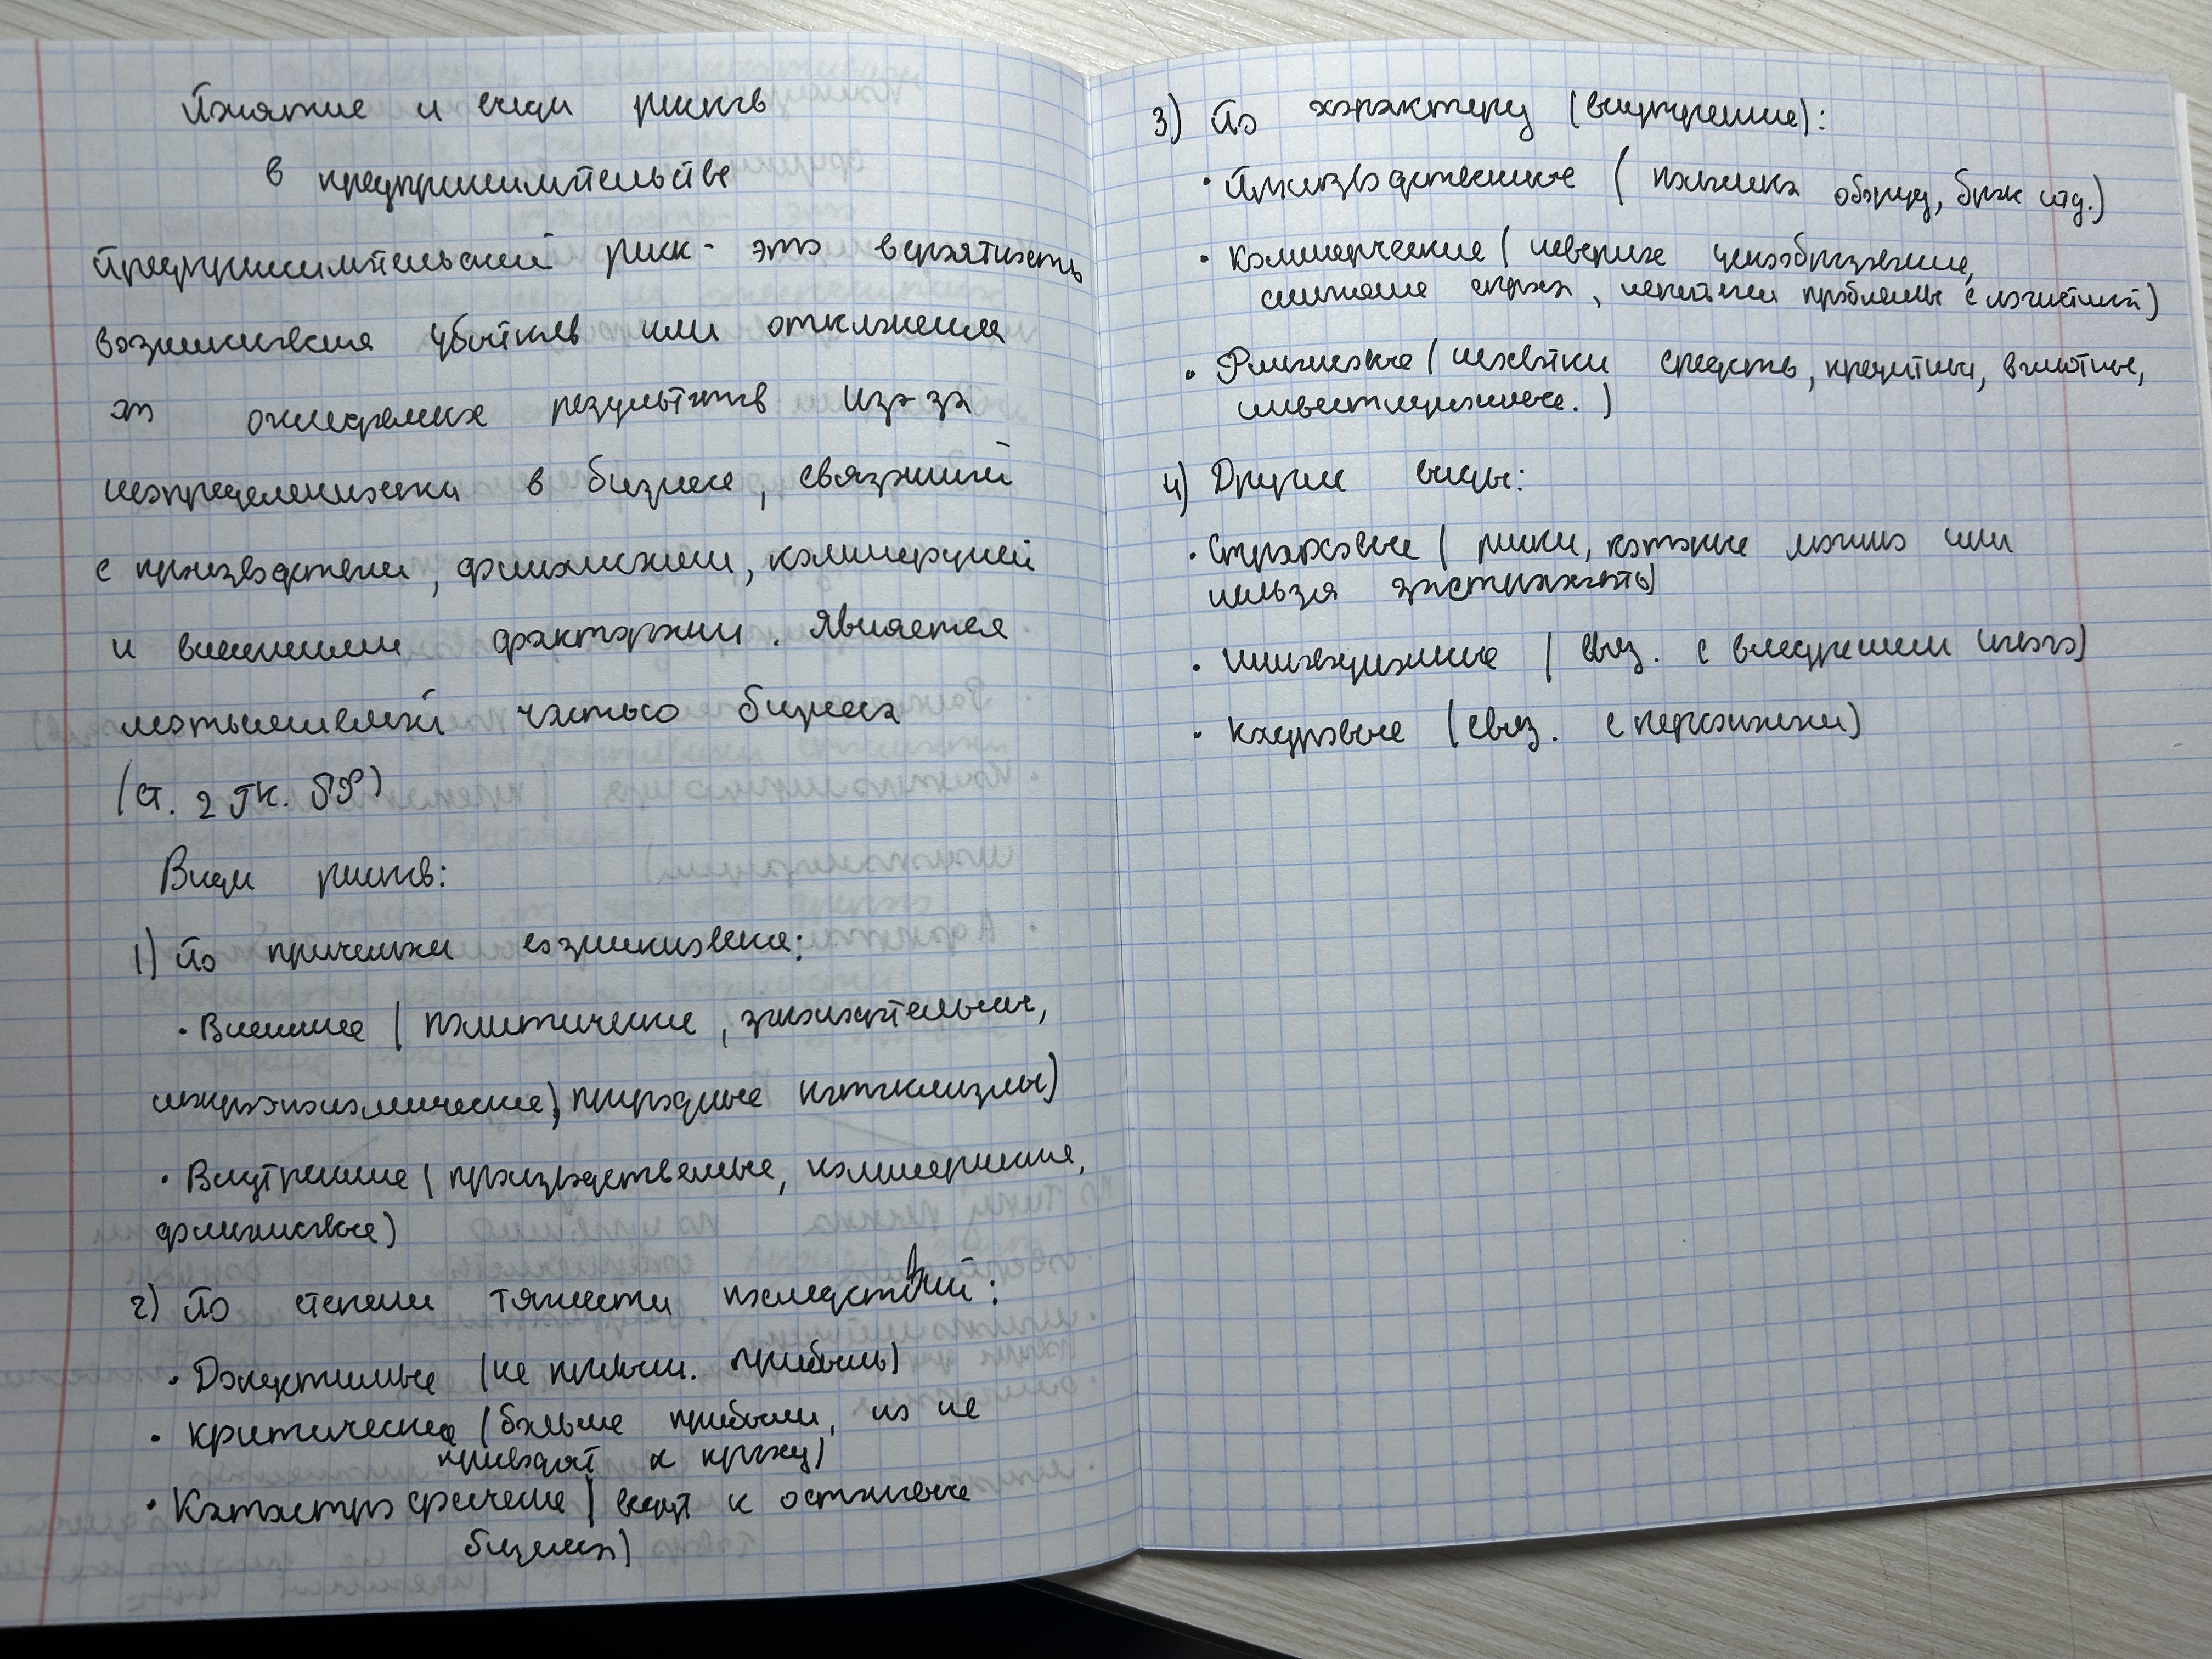 Понятие и виды рисков
в предпринимательстве
Предпринимательский риск - это вероятность
возникновения убытков или отклонения
от ожидаемых результатов из-за
неопределенности в бизнесе, связанной
с производством, финансами, коммерцией
и внешними факторами. Является
неотъемлемой частью бизнеса
(ст. 2 ГК. РФ)
Виды рисков:
1) По причинам возникновения:
• Внешние (политические, законодательные,
макроэкономические, природные катаклизмы)
• Внутренние (производственные, коммерческие,
финансовые)
2) По степени тяжести последствий:
• Допустимые (не превыш. прибыль)
• Критические (больше прибыли, но не
приводят к краху)
• Катастрофические (ведут к остановке
бизнеса)
3) По характеру (внутренние):
• Производственные (поломка оборуд, брак итд.)
• Коммерческие (неверное ценообразование,
снижение спроса, проблемы с логистикой)
• Финансовые (нехватки средств, кредитные, валютные,
инвестиционные.)
4) Другие виды:
• Страховые (риски, которые можно или
нельзя застраховать)
• Инновационные (связ. с внедрением нового)
• Кадровые (связ. с персоналом)